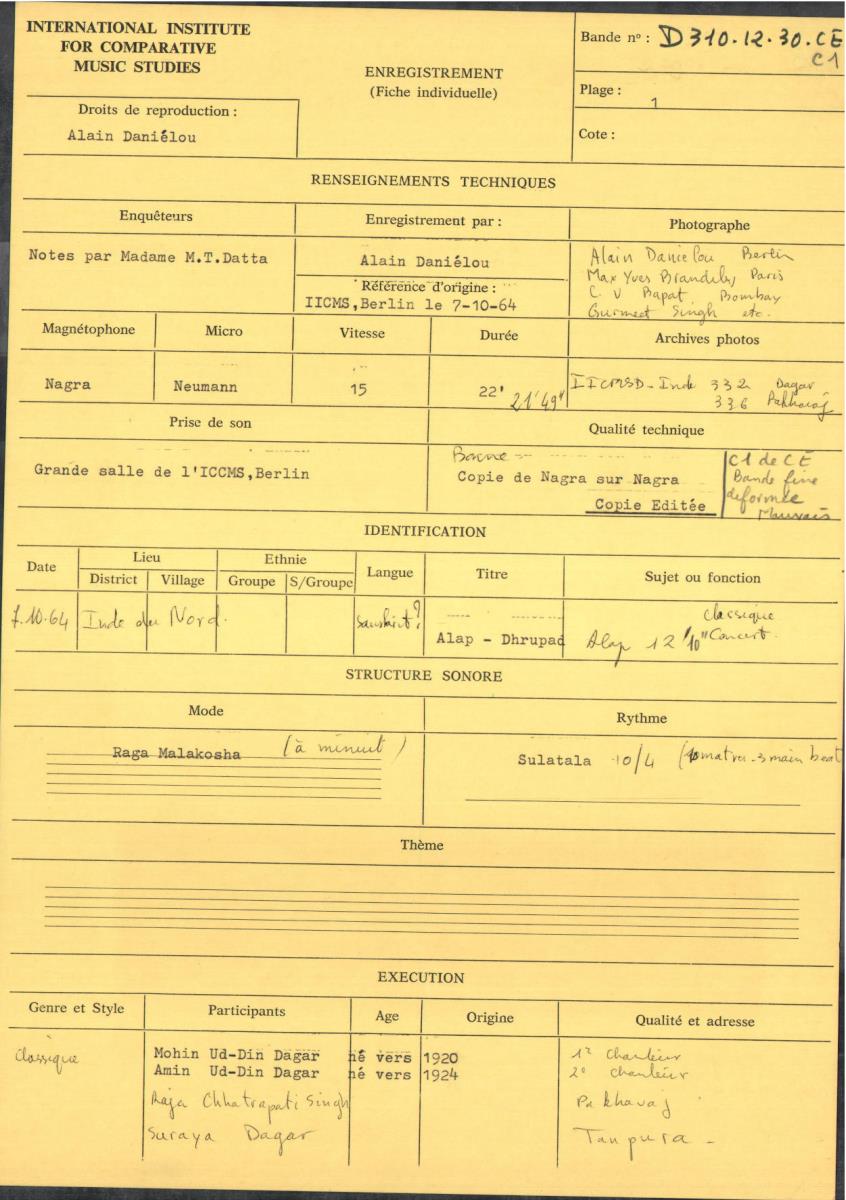 INTERNATIONAL INSTITUTE
FOR COMPARATIVE
MUSIC STUDIES
Droits de reproduction :
Alain Daniélou
ENREGISTREMENT
(Fiche individuelle)
Bande nº : D310.12.30.CE
C1
Plage :
1
Cote :
RENSEIGNEMENTS TECHNIQUES
Enquêteurs
Notes par Madame M.T.Datta
Enregistrement par :
Alain Daniélou
Référence d'origine :
IICMS,Berlin le 7-10-64
Photographe
Alain Danielou Berlin
Max Yves Brandily Paris
C. V Bapat, Bombay
Gurmeet Singh etc.
Magnétophone
Nagra
Micro
Neumann
Vitesse
15
Durée
22' 21'49"
Archives photos
IICMSD - Inde 332 Dagar
336 Pakhavaj
Prise de son
Grande salle de l'ICCMS,Berlin
Qualité technique
Bonne
Copie de Nagra sur Nagra
Copie Editée
C1 de CE
Bande fine
deformée
Mauvais
IDENTIFICATION
Date
Lieu
District
Village
Ethnie
Groupe
S/Groupe
Langue
Titre
Sujet ou fonction
7.10.64
Inde du Nord.
sanskrit?
Alap - Dhrupad
classique
Alap 12'10" Concert.
STRUCTURE SONORE
Mode
Raga Malakosha (à minuit)
Rythme
Sulatala 10/4 (10 matra - 3 main beat
Thème
EXECUTION
Genre et Style
Participants
Age
Origine
Qualité et adresse
Classique
Mohin Ud-Din Dagar né vers 1920 1º Chanteur
Amin Ud-Din Dagar né vers 1924 2º Chanteur
Raja Chhatrapati Singh Pakhavaj
Suraya Dagar Tanpura -